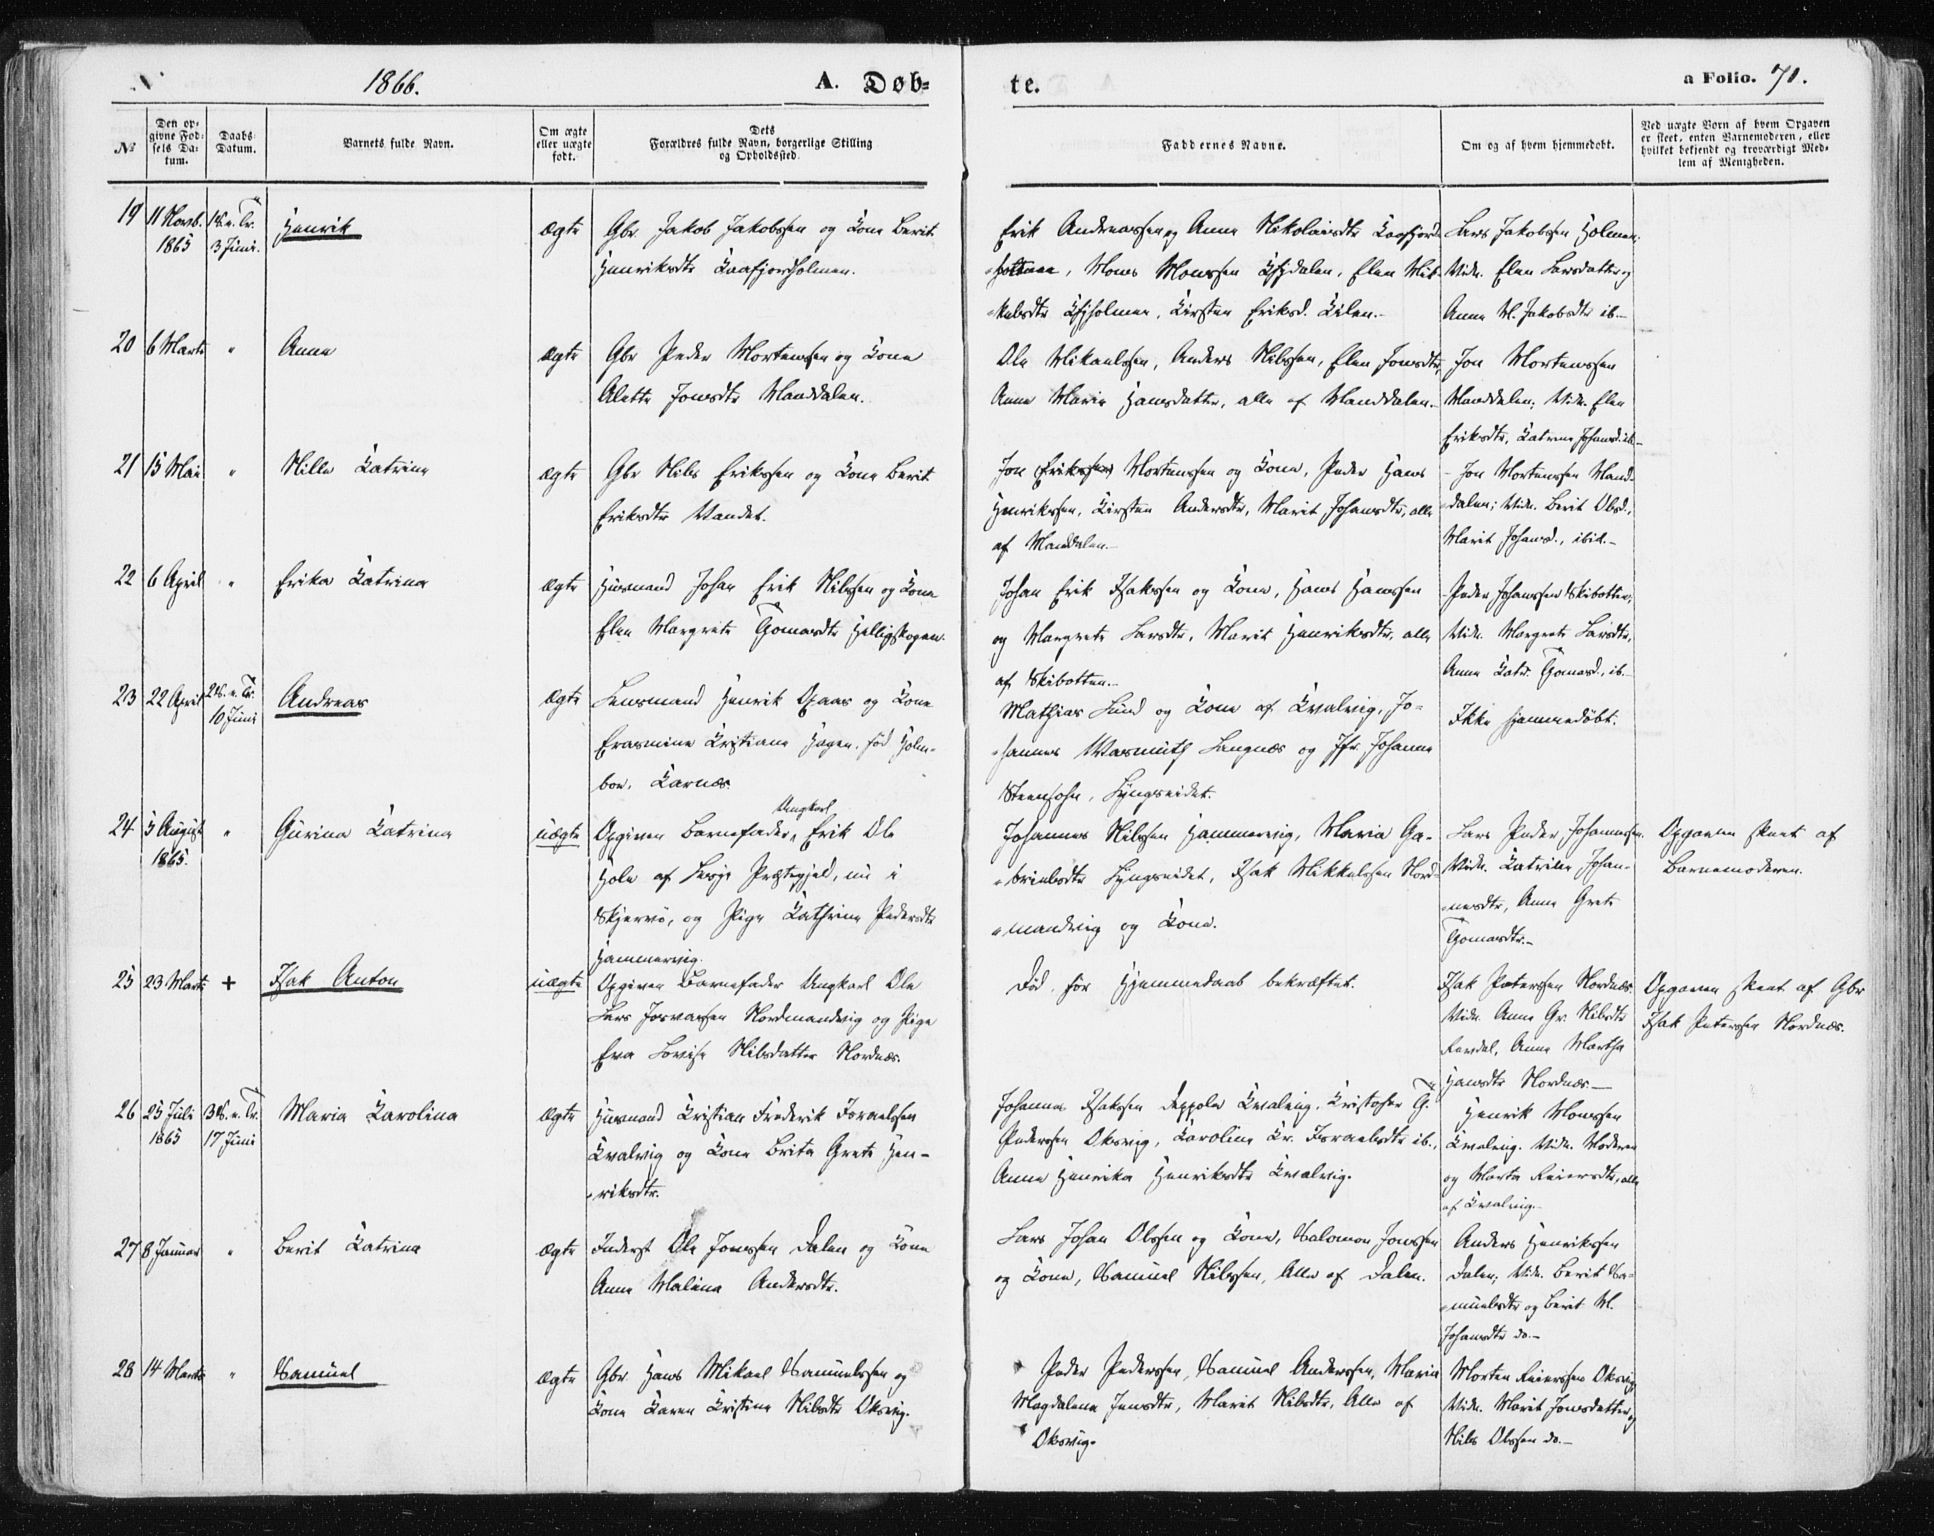 1866.
A. Døb=
te.
a Folio. 71.
№
Den op-
givne Fød-
sels Da-
tum.
Daabs-
Datum.
Barnets fulde Navn.
Om ægte
eller uægte
født.
Dets
Forældres fulde Navn, borgerlige Stilling
og Opholdssted.
Faddernes Navne.
Om og af hvem hjemmedøbt.
Ved uægte Børn af hvem Opgaven
er skeet, enten Barnemoderen, eller
hvilket bekjendt og troværdigt Med-
lem af Menigheden.
19
11 Novb.
1865
1 S. e. Tr.
3 Juni.
Henrik
ægte
Gbr. Jakob Jakobsen og Kone Berit
Henriksdtr Kaafjordholmen.
Erik Andreassen og Anna Nikolaisdtr Kaafjord-
holmen, Mons Monssen, Elen Mik-
kelsdtr, Kirsten Eriksd. Kilen.
Lars Jakobsen Holmen.
Vidn. Elen Larsdatter og
Anna M. Jakobsdtr ib.
20
6 Marts
"
Anna
ægte
Gbr Peder Mortenssen og Kone
Alette Jonsdtr Manddalen.
Ole Mikaelssen, Anders Nilssen, Elen Jonsdtr,
Anne Marie Hansdatter, alle af Manddalen.
Jon Mortenssen
Manddalen; Vidn. Elen
Eriksdtr, Katrine Johansd. ib.
21
15 Mai
"
Nille Katrina
ægte
Gbr Nils Erikssen og Kone Berit
Eriksdtr Vandet.
Jon Erikssen Mortenssen og Kone, Peder Hans
Henrikssen, Kirsten Andersdtr, Marit Johansdtr, alle
af Manddalen.
Jon Mortenssen Mand-
dalen; Vidn. Berit Olsd.,
Marit Johansd., ibid.
22
6 April
"
Erika Katrina
ægte
Huusmand Johan Erik Nilssen og Kone
Elen Margrete Tomasdtr Helligskogen.
Johan Erik Isakssen og Kone, Hans Hanssen
og Margrete Larsdtr, Marit Henriksdtr, alle
af Skibotten.
Peder Johanssen Skibotten;
Vidn. Margrete Larsdtr,
Anna Katr. Tomasd., ib.
23
22 April
2 S. e. Tr.
10 Juni
Andreas
ægte
Lensmand Henrik Daas og Kone
Erasmine Kristiane Hagen, fød Holm-
boe, Karnæs.
Mathias Lund og Kone af Kvalvig, Jo-
hannes Wasmuth Langnæs og Jfr. Johanna
Steensohn, Lyngseidet.
Ikke hjemmedøbt.
24
5 August
1865.
"
Gurina Katrina
uægte
Opgiven Barnefader, Ungkarl Erik Ole
Hole af Lesje Præstegjeld, nu i
Skjervø, og Pige Kathrine Pedersdtr
Hammervig.
Johannes Nilssen Hammervig, Maria Ga-
brielsdtr Lyngseidet, Isak Mikkelssen Nord-
mandvig og Kone.
Lars Peder Johannessen.
Vidn. Katrine Johan-
nesdtr, Anne Grete
Tomasdtr.
Opgaven skeet af
Barnemoderen.
25
23 Marts
+
Isak Anton
uægte
Opgiven Barnefader Ungkarl Ole
Lars Josvassen Nordmandvig og Pige
Eva Lovise Nilsdatter Nordnæs.
Død før Hjemmedaab bekræftet.
Isak Peterssen Nordnæs.
Vidn. Anne Gr. Nilsdtr
Revdal, Anne Martha
Hansdtr Nordnæs.
Opgaven skeet af Gbr
Isak Peterssen Nordnæs.
26
25 Juli
1865
3 S. e. Tr.
17 Juni
Maria Karolina
ægte
Huusmand Kristian Frederik Israelssen
Kvalvig og Kone Brita Grete Hen-
riksdtr.
Johannes Isakssen Seppola Kvalvig, Kristofer G.
Pederssen Oksvig, Karoline Kr. Israelsdtr ib.,
Anne Henrika Henriksdtr Kvalvig.
Henrik Monssen
Kvalvig. Vidn. Moderen
og Marta Reiersdtr, alle
af Kvalvig.
27
8 Januar
"
Berit Katrina
ægte
Inderst Ole Jonssen Dalen og Kone
Anne Malena Andersdtr.
Lars Johan Olssen og Kone, Salomon Jonssen
og Kone, Samuel Nilssen, Alle af Dalen.
Anders Henrikssen
Dalen; Vidn. Berit Sa-
muelsdtr og Berit M.
Johansdtr do.
28
14 Marts
"
Samuel
ægte
Gbr. Hans Mikael Samuelssen og
Kone Karen Kristine Nilsdtr Oksvig.
Peder Pederssen, Samuel Anderssen, Maria
Magdalena Jensdtr, Marit Nilsdtr, Alle af
Oksvig.
Morten Reierssen Oksvig
Vidn. Marit Jonsdatter og
Nils Olssen do.